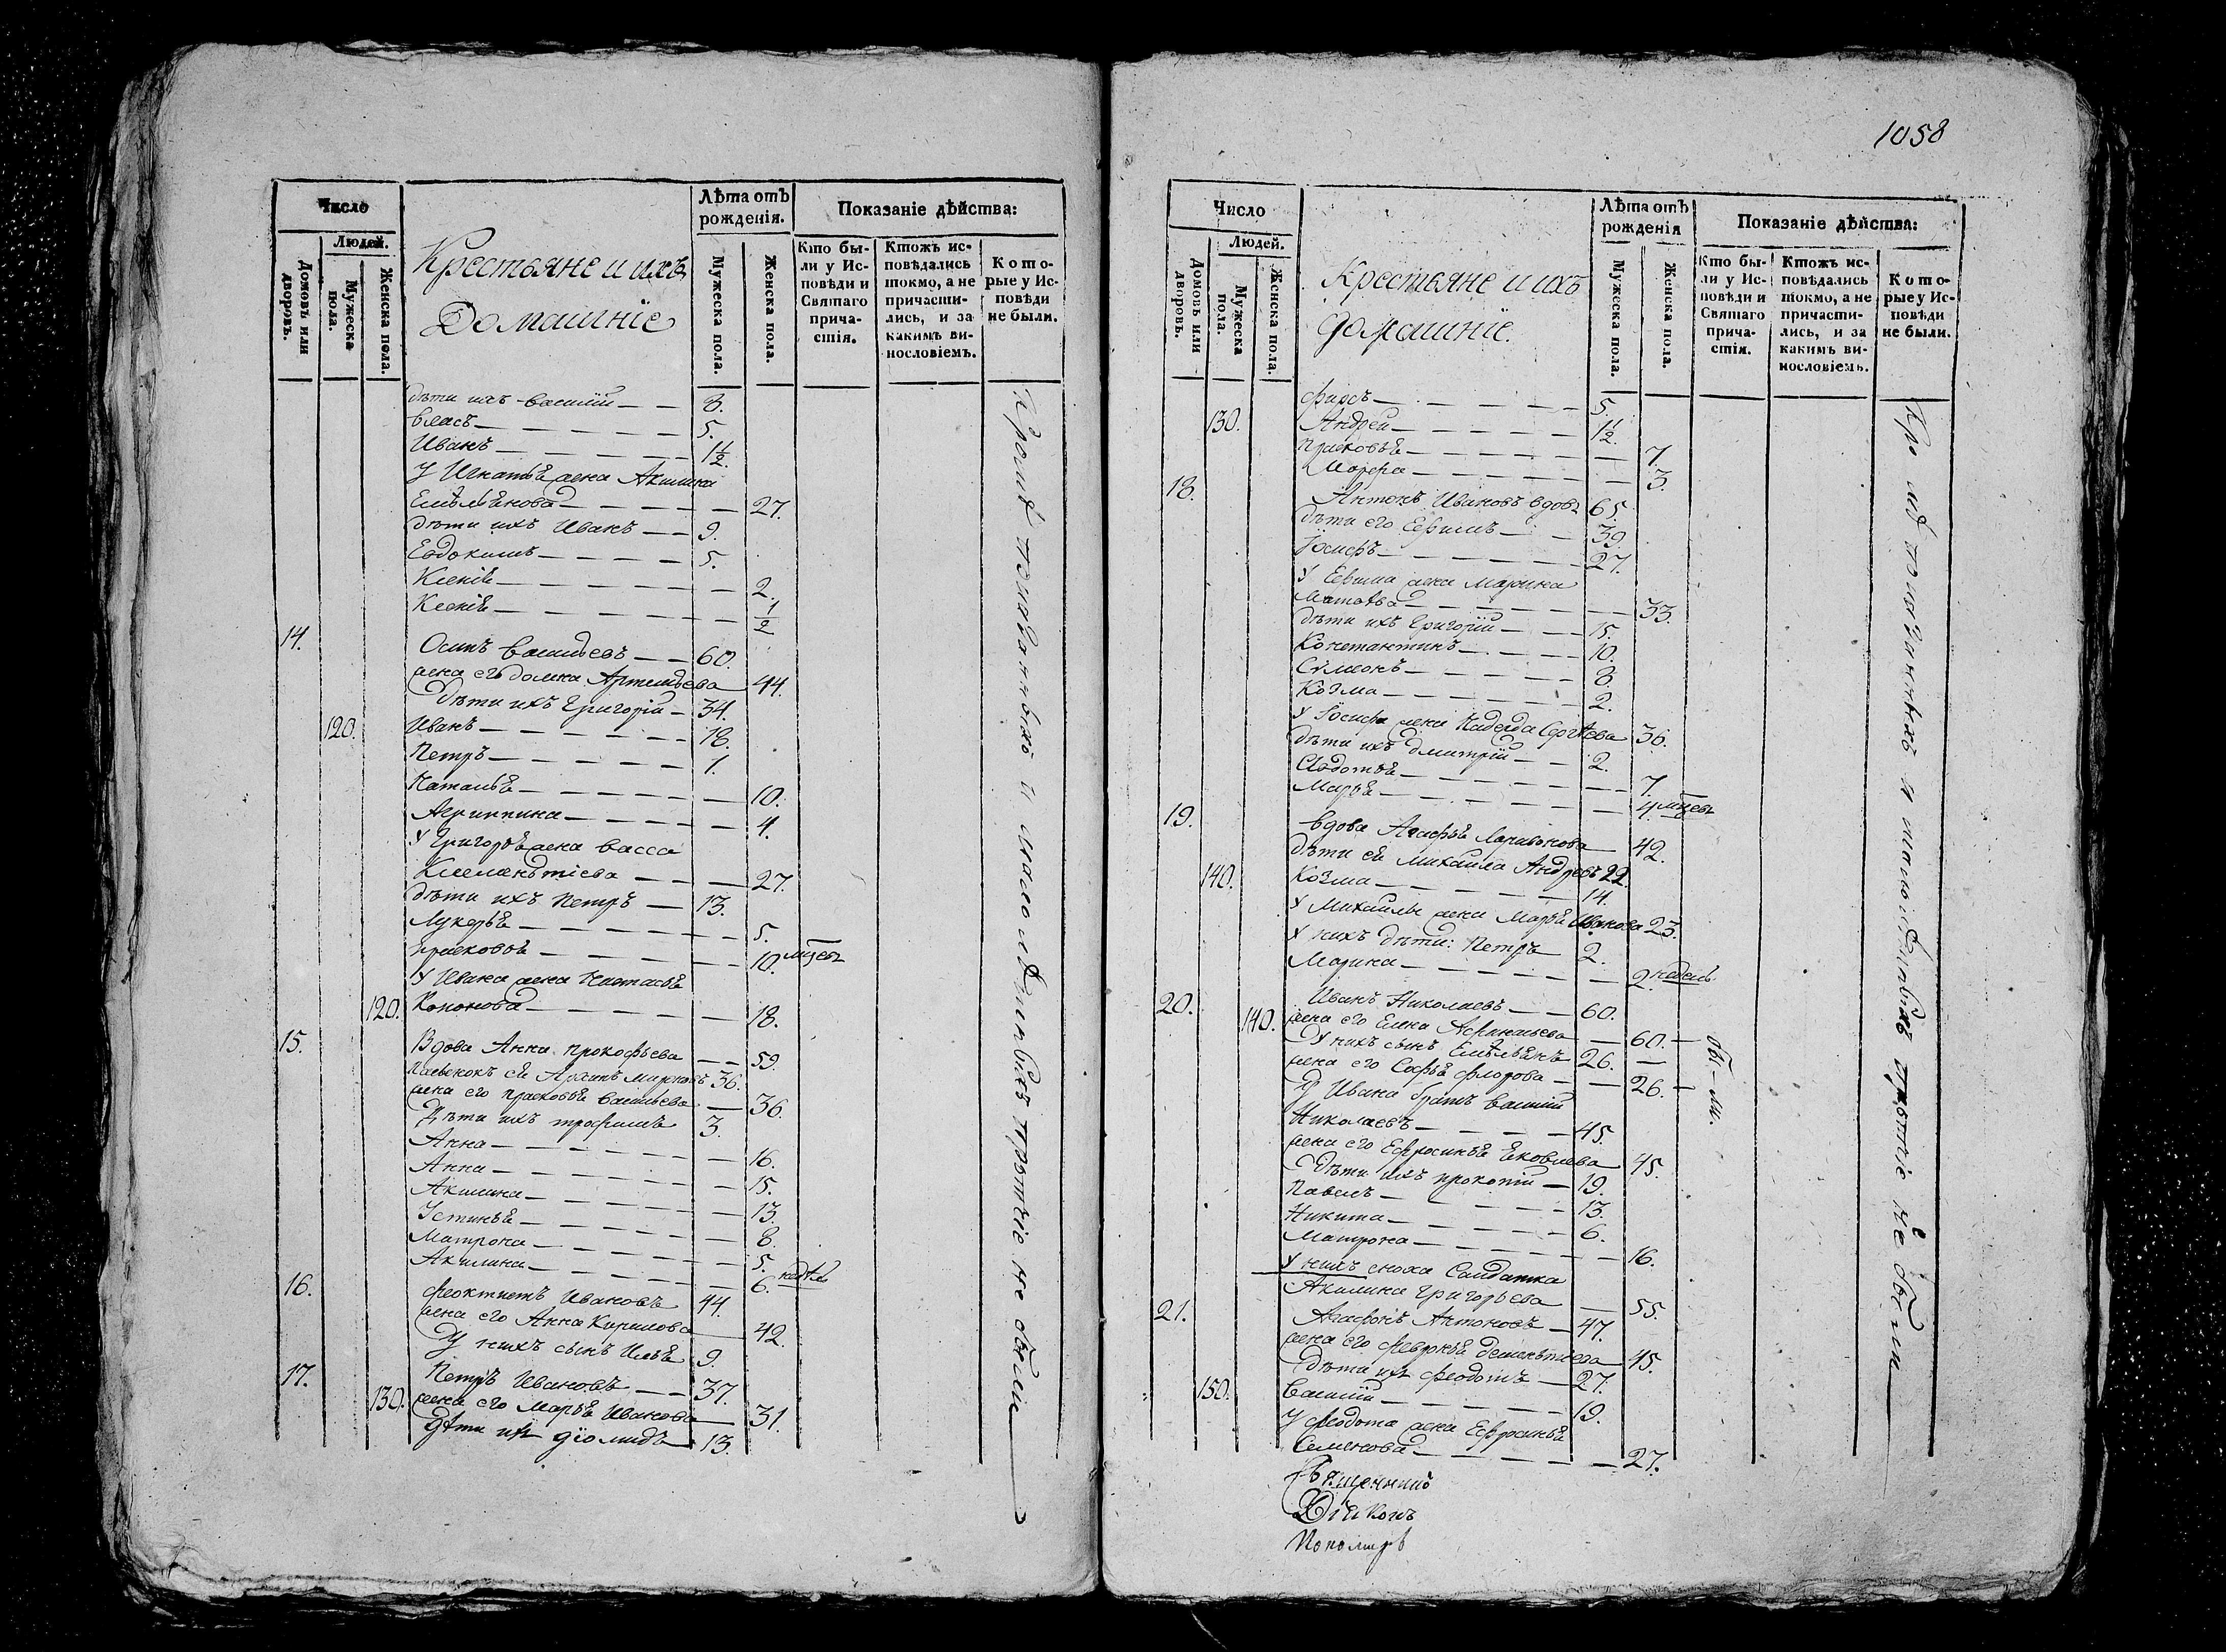 Число
Лѣта отъ рожденія.
Показаніе дѣйства:
Людей.
Домовъ или дворовъ.
Мужеска пола.
Женска пола.
Крестьяне и ихъ
Домашніе
Мужеска пола.
Женска пола.
Кто были у Исповѣди и Святаго причастія.
Ктожъ исповѣдались токмо, а не причастились, и за какимъ винословіемъ.
Которые у Исповѣди не были.
дѣти ихъ Василій 8.
Власъ 5.
Иванъ 1½.
У Игнатья жена Акилина
Емельянова 27.
дѣти ихъ Иванъ 9.
Евдокимъ 5.
Ксенія 2.
Ксенія ½
14. Осипъ Васильевъ 60.
жена его Домна Артемьева 44.
Дѣти ихъ Григорій 34.
120. Иванъ 18.
Петръ 1.
Наталья 10.
Агрипина 4.
У Григорья жена Васса
Клементіева 27.
дѣти ихъ Петръ 13.
Лукерья 5.
Прасковья 10. мцевъ
У Ивана жена Настасья
120. Кононова 18.
15. Вдова Анна Прокофьева 59.
Пасынокъ ея Архипъ Мироновъ 36.
жена его Прасковья Васильева 36.
Дѣти ихъ Трофимъ 3.
Анна 16.
Анна 15.
Акилина 13.
Устинья 8.
Матрона 5.
Акилина 6. недѣль
16. Феоктистъ Ивановъ 44.
жена его Анна Кирилова 42
У нихъ сынъ Илья 9.
17. Петръ Ивановъ 37.
130. жена его Марья Иванова 31.
Дѣти ихъ Діомидъ 13.
Кромѣ показанныхъ и малолѣтныхъ протчіе не были
1058
Число
Лѣта отъ рожденія
Показаніе дѣйства:
Людей.
Домовъ или дворовъ.
Мужеска пола.
Женска пола.
Крестьяне и ихъ
домашніе.
Мужеска пола.
Женска пола.
Кто были у Исповѣди и Святаго причастія.
Ктожъ исповѣдались токмо, а не причастились, и за какимъ винословіемъ.
Которые у Исповѣди не были.
Фирсъ 5.
130. Андрей 1½.
Прасковья 7.
Марфа 3.
18. Антонъ Ивановъ вдовъ 65.
дѣти его Ефимъ 39.
Іосифъ 27.
У Ефима жена Марина
Матвѣева 33.
дѣти ихъ Григорій 15.
Константинъ 10.
Сѵмеонъ 8
Козма 2.
У Іосифа жена Надежда Сергѣева 36.
дѣти ихъ Дмитрій 2.
Авдотья 7.
Марья 4. мцевъ
19. Вдова Агафья Ларивонова 42.
дѣти ея Михайла Андреевъ 22.
140. Козма 14.
У Михайлы жена Марья Иванова 23.
У нихъ дѣти: Петръ 2.
Марина 2 недѣль
20. Иванъ Николаевъ 60.
140. жена его Елена Афанасьева 60.
У нихъ сынъ Емельянъ 26.
жена его Софья Флорова 26.
У Ивана братъ Василій
Николаевъ 45.
жена его Ефросинья Яковлева 45.
Дѣти ихъ Прокопій 19.
Павелъ 13.
Никита 6.
Матрона 16.
У нихъ сноха Салдатка
Акилина Григорьева 55.
21. Агафонъ Антоновъ 47.
жена его Февронья Дементьева 45.
Дѣти ихъ Феодотъ 27.
150. Василій 19.
У Феодота жена Ефросинья
Семенова 27.
бы-ли.
Кромѣ показанныхъ и малолѣтныхъ протчіе не были
Священникъ
Діаконъ
Пономарь